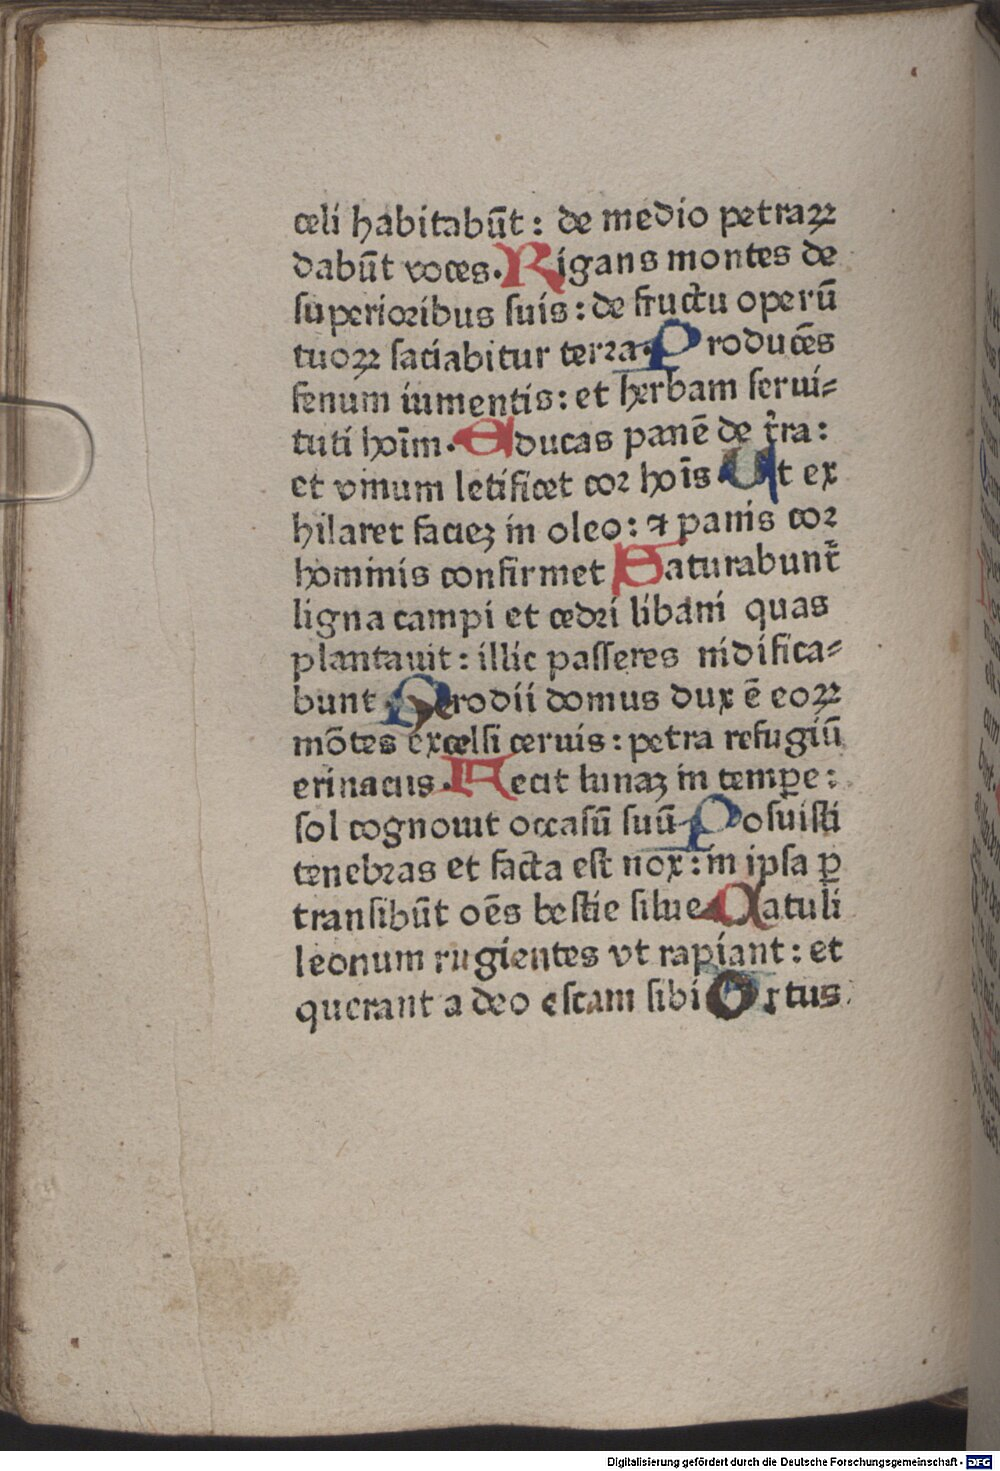 celi habitabūt: de medio petraꝝ
dabūt voces. Rigans montes de
superioribus suis: de fructu operū
tuoꝝ saciabitur terra. Producēs
fenum iumentis: et herbam serui⸗
tuti hoīm. Educas panē de tr̄ra:
et vinum letificet cor hoīs Ut ex
hilaret facieꝫ in oleo: ⁊ panis cor
hominis confirmet Saturabunt᷑
ligna campi et cedri libani quas
plantauit: illic passeres nidifica⸗
bunt Herodii domus dux ē eoꝝ
mōtes excelsi ceruis: petra refugiū
erinacus. Fecit lunaꝫ in temꝑe:
sol cognouit occasū suū Posuisti
tenebras et facta est nox: in ipsa ꝑ
transibūt oēs bestie silue Catuli
leonum rugientes vt rapiant: et
querant a deo escam sibi Ortus
Digitalisierung gefördert durch die Deutsche Forschungsgemeinschaft - DFG